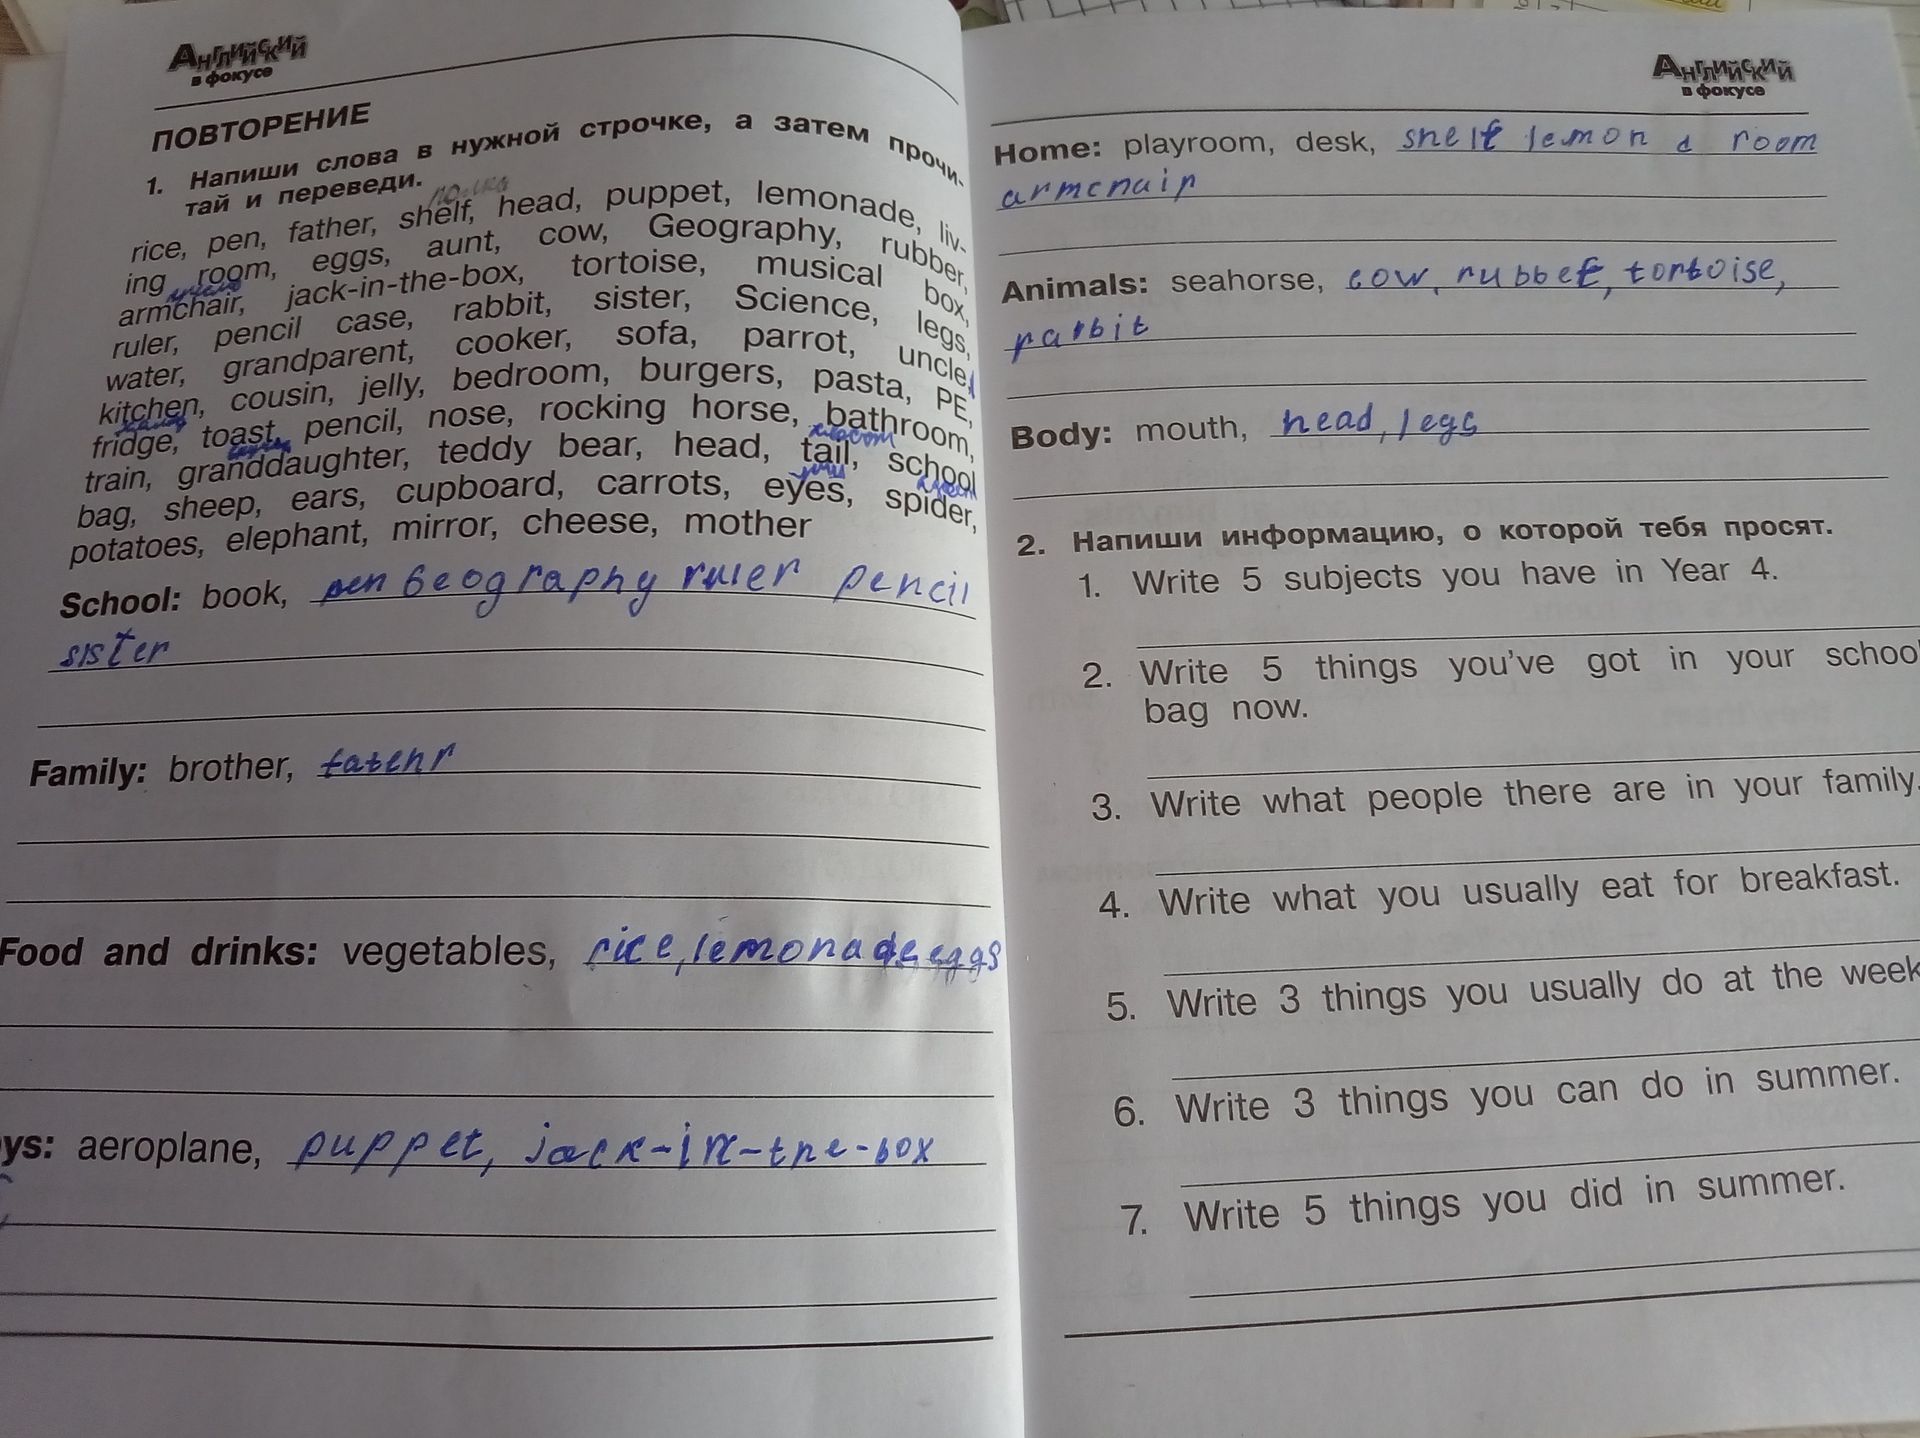 Английский
в фокусе
ПОВТОРЕНИЕ
1. Напиши слова в нужной строчке, а затем прочи-
тай и переведи.
полка
rice, pen, father, shelf, head, puppet, lemonade, liv-
ing room, eggs, aunt, cow, Geography, rubber,
armchair, jack-in-the-box, tortoise, musical box,
ruler, pencil case, rabbit, sister, Science, legs,
water, grandparent, cooker, sofa, parrot, uncle,
kitchen, cousin, jelly, bedroom, burgers, pasta, PE,
fridge, toast, pencil, nose, rocking horse, bathroom,
train, granddaughter, teddy bear, head, tail, school
bag, sheep, ears, cupboard, carrots, eyes, spider,
potatoes, elephant, mirror, cheese, mother
School: book, pen Geography ruler pencil
sister
Family: brother, fatehr
Food and drinks: vegetables, rice, lemonade, eggs
ys: aeroplane, puppet, jack-in-the-box
Английский
в фокусе
Home: playroom, desk, shelf lemon d room
armchair
Animals: seahorse, cow, rubbet, tortoise,
rabbit
Body: mouth, head, legs
2. Напиши информацию, о которой тебя просят.
1. Write 5 subjects you have in Year 4.
2. Write 5 things you've got in your school
bag now.
3. Write what people there are in your family.
4. Write what you usually eat for breakfast.
5. Write 3 things you usually do at the week
6. Write 3 things you can do in summer.
7. Write 5 things you did in summer.